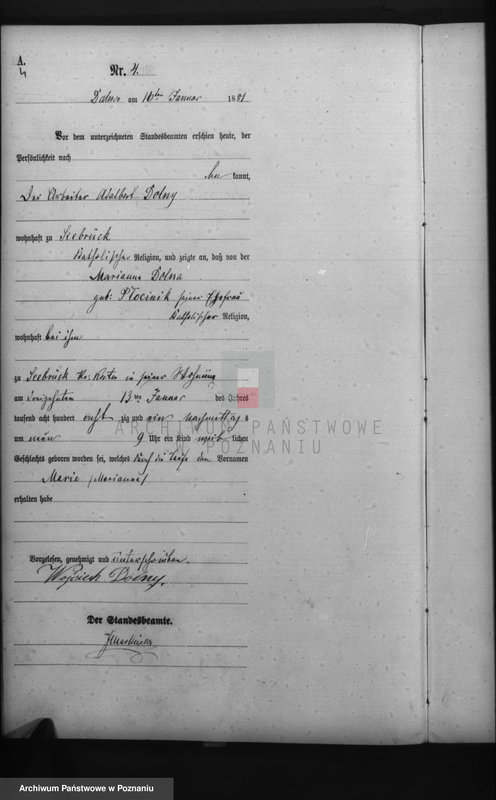 A.
Nr. 4.
Dalewo am 16ten Januar 1881
Vor dem unterzeichneten Standesbeamten erschien heute, der
Persönlichkeit nach
be kannt,
Der Arbeiter Adalbert Dolny
wohnhaft zu Seebrück
Katholischer Religion, und zeigte an, daß von der
Marianna Dolna
geb: Płocinik seiner Ehefrau
Katholischer Religion,
wohnhaft bei ihm
zu Seebrück Kr. in seiner Wohnung
am dreizehnten 13ten Januar des Jahres
tausend acht hundert acht zig und ein Nachmittag s
um neun 9 Uhr ein Kind weib lichen
Geschlechts geboren worden sei, welches durch die Taufe den Vornamen
Marie /Marianna/
erhalten habe
Vorgelesen, genehmigt und unterschrieben.
Wojciech Dolny.
Der Standesbeamte.
ARCHIWUM PAŃSTWOWE
W POZNANIU
Archiwum Państwowe w Poznaniu